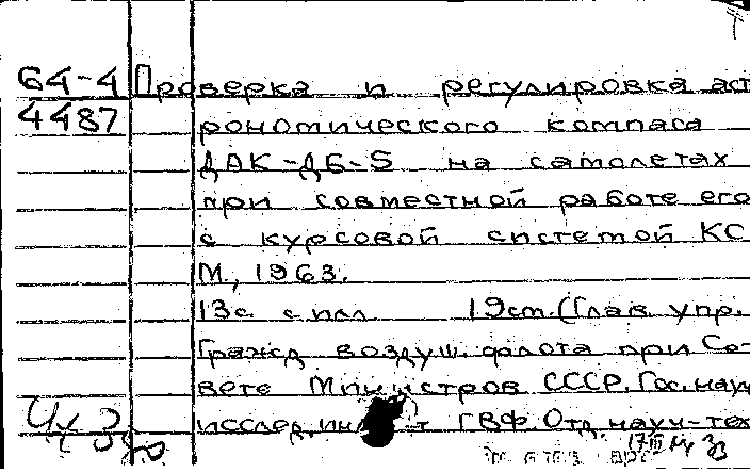 64-4 Проверка и регулировка аст
4487 рономического компаса
ДАК-ДБ-5 на самолетах
при совместной работе его
с курсовой системой КС
М., 1963.
13с. с илл. 19см. (Глав. упр.
Гражд. воздуш. флота при Со-
вете Министров СССР. Гос. науч
исслед. ГВФ. Отд. науч-тех